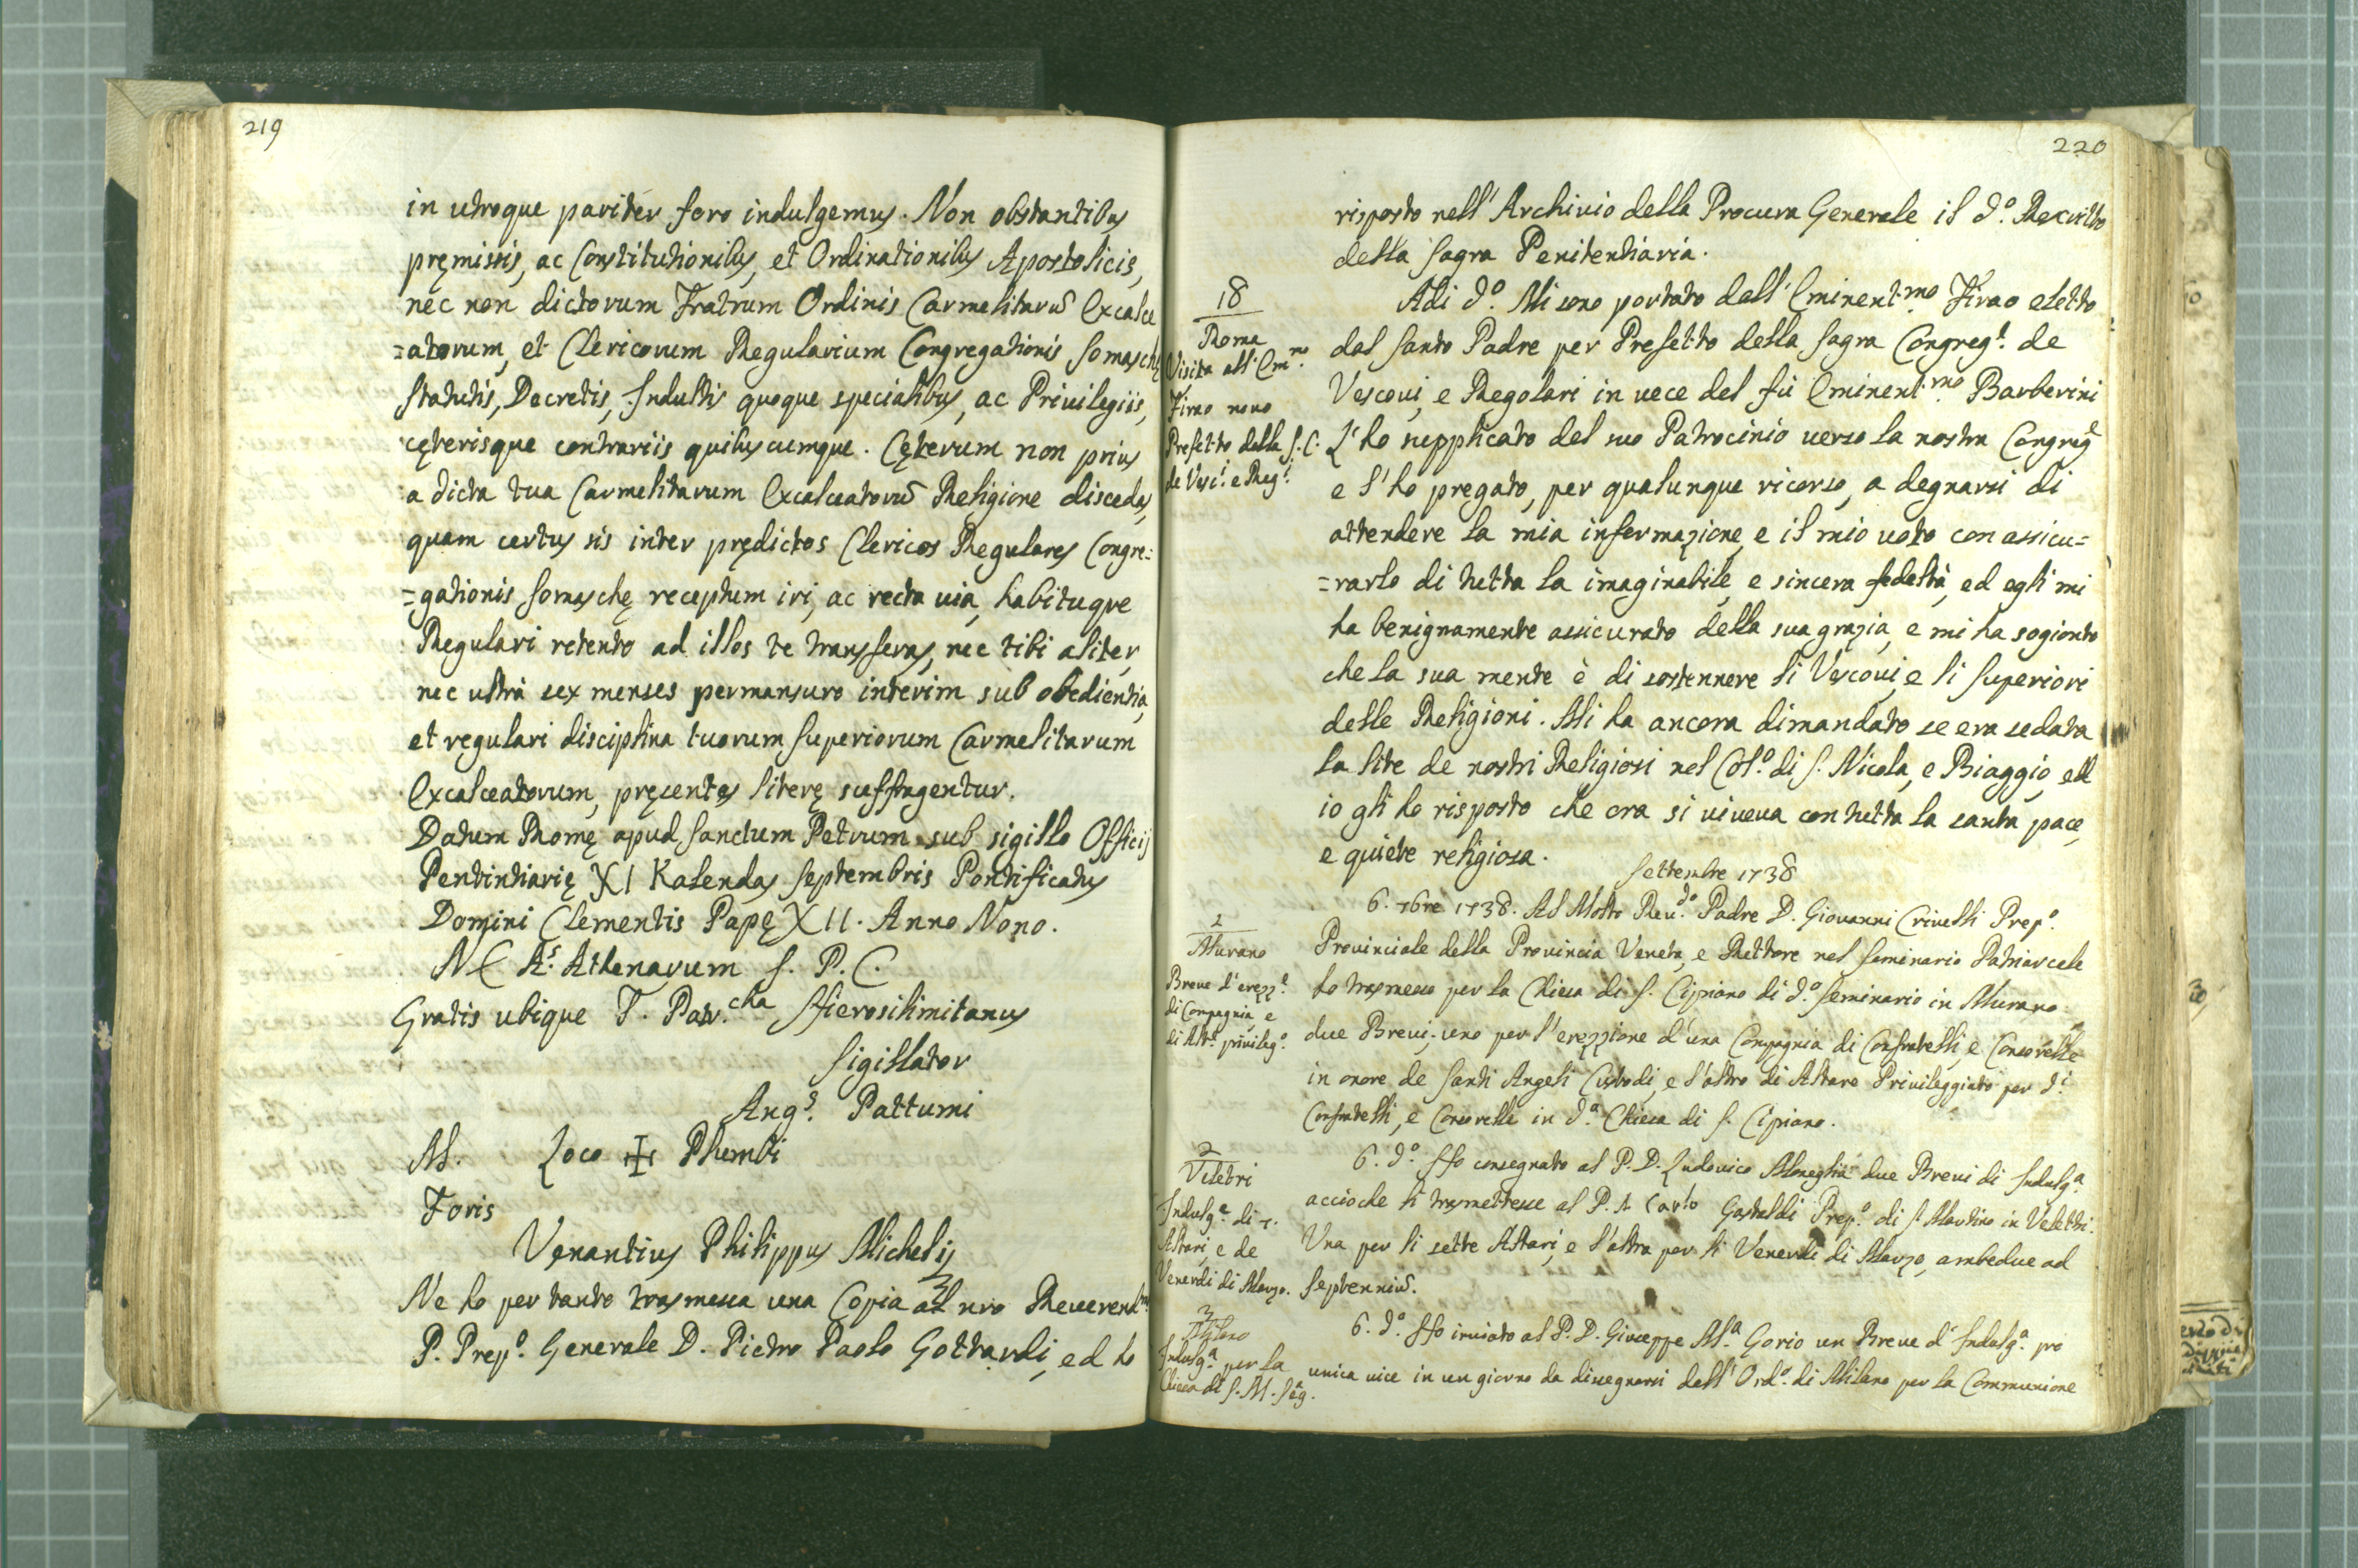 219
in utroque pariter foro indulgemus. Non obstantibus
pręmissis, ac Constitutionibus, et Ordinationibus Apostolicis,
nec non dictorum Fratrum Ordinis Carmelitarū Excalce
=atorum, et Clericorum Regularium Congregationis Somaschę
Statutis, Decretis, Indultis quoque specialibus, ac Privilegiis,
cęterisque contrariis quibuscumque. Cęterum non prius
a dicta tua Carmelitarum Excalceatorū Religione discedas,
quam certus sis inter prędictos Clericos Regulares Congre=
=gationis Somaschę receptum iri, ac recta uia, habituque
Regulari retento ad illos te transferas, nec tibi aliter,
nec ultrà sex menses permansuro interim sub obedientia,
et regulari disciplina tuorum Superiorum Carmelitarum
Excalceatorum, pręsentes literę suffragentur.
Datum Romę apud Sanctum Petrum sub sigillo Officij
Penitentiarię XI Kalendas Septembris Pontificatus
Domini Clementis Papę XII. Anno Nono.
A.s Athenarum S. P. C.
Gratis ubique T. Patr.cha Hierosilimitanus
Sigillator
Ang.s Pattumi
M. Loco ✠ Plumbi
Foris
Venantius Philippus Michelij
Ne ho per tanto trasmessa una Copia al nro Reverend.mo
P. Prep.o Generale D. Pietro Paolo Gottardi, ed ho
220
risposto nell'Archivio della Procura Generale il d.o Rescritto
della Sagra Penitentiaria.
18
Roma
Visita all'Em.mo
Firao novo
Prefetto della S. C.
de Vesc.i e Reg.i
Adi d.o Mi sono portato dall'Eminent.mo Firao eletto
dal Santo Padre per Prefetto della Sagra Congreg.e de
Vescovi, e Regolari in uece del fù Eminent.mo Barberini
L'ho supplicato del suo Patrocinio uerso la nostra Congreg.e
e l'ho pregato, per qualunque ricorso, a degnarsi di
attendere la mia informazione, e il mio uoto con assicu=
=rarlo di tutta la imaginabile, e sincera fedeltà, ed egli mi
ha benignamente assicurato della sua grazia, e mi ha sogionto
che la sua mente è di sostennere li Vescoui, e li Superiori
delle Religioni. Mi ha ancora dimandato se era sedata
la lite de nostri Religiosi nel Col.o di S. Nicola, e Biaggio, ed
io gli ho risposto che ora si uiueua con tutta la santa pace,
e quiete religiosa.
Settembre 1738
2
Murano
Breue d'erezz.e
di Compagnia e
di Alt.e privileg.o
6. 7bre 1738. Al Molto Reu.do Padre D. Giouanni Criuelli Prep.o
Prouinciale della Prouincia Veneta, e Rettore nel Seminario Patriarcale
ho trasmesso per la Chiesa di S. Cipriano di d.o Seminario in Murano
due Breui, uno per l'erezzione d'una Compagnia di Confratelli, e Consorelle
in onore de Santi Angeli Custodi, e l'altro di Altare Priuileggiato per d.i
Confratelli, e Consorelle in d.a Chiesa di S. Cipriano.
2
Veletri
Indulg.e di 7.
Altari, e de
Venerdi di Marzo.
6. d.o Ho consegnato al P. D. Ludouico Moneglia due Breui di Indulg.a
accioche li trasmettesse al P. D. Carlo Gastaldi Prep.o di S. Martino in Veletri.
Vna per li sette Altari, e l'altra per li Venerdi di Marzo, ambedue ad
Septenniū.
3
Milano
Indulg.a per la
Chiesa di S. M. Seg.a
6. d.o Ho inuiato al P. D. Giuseppe M.a Gorio un Breue d'Indulg.a pro
unica uice in un giorno da dissegnarsi dall'Ord.o di Milano per la Communione